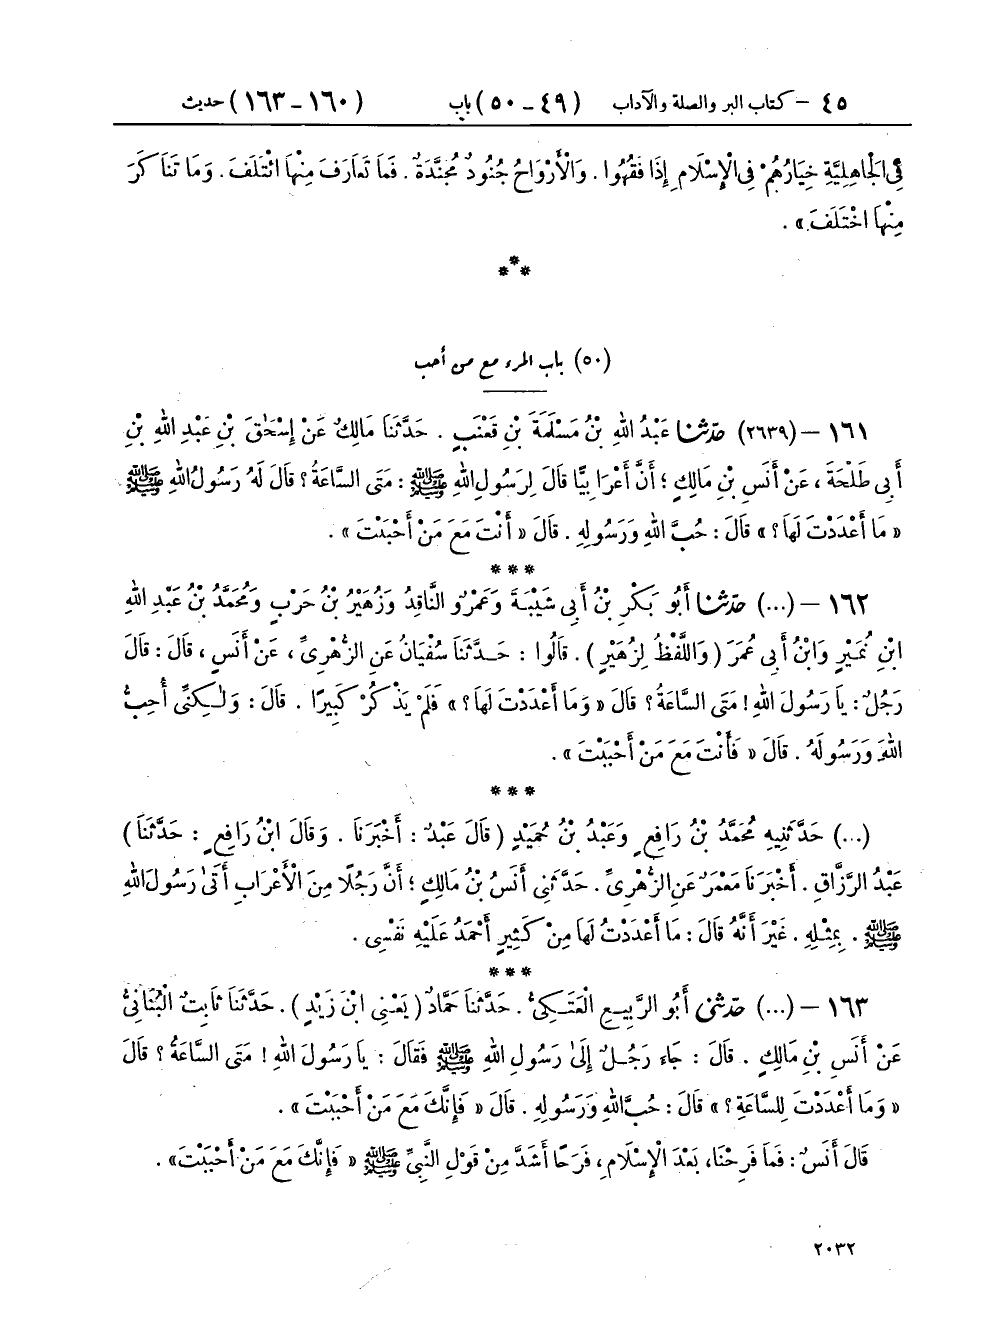 ٤٥ - كتاب البر والصلة والآداب (٤٩ - ٥٠) باب (١٦٠ - ١٦٣) حديث
فِي الْجَاهِلِيَّةِ خِيَارُهُمْ فِي الْإِسْلَامِ إِذَا فَقُهُوا . وَالْأَرْوَاحُ جُنُودٌ مُجَنَّدَةٌ . فَمَا تَعَارَفَ مِنْهَا ائْتَلَفَ . وَمَا تَنَاكَرَ
مِنْهَا اخْتَلَفَ » .
***
(٥٠) باب المرء مع من أحب
١٦١ - (٢٦٣٩) حدّثنا عَبْدُ اللهِ بْنُ مَسْلَمَةَ بْنِ قَعْنَبٍ . حَدَّثَنَا مَالِكٌ عَنْ إِسْحَٰقَ بْنِ عَبْدِ اللهِ بْنِ
أَبِي طَلْحَةَ ، عَنْ أَنَسِ بْنِ مَالِكٍ ؛ أَنَّ أَعْرَابِيًّا قَالَ لِرَسُولِ اللهِ ﷺ : مَتَى السَّاعَةُ ؟ قَالَ لَهُ رَسُولُ اللهِ ﷺ
« مَا أَعْدَدْتَ لَهَا ؟ » قَالَ : حُبَّ اللهِ وَرَسُولِهِ . قَالَ « أَنْتَ مَعَ مَنْ أَحْبَبْتَ » .
***
١٦٢ - (...) حدّثنا أَبُو بَكْرِ بْنُ أَبِي شَيْبَةَ وَعَمْرٌو النَّاقِدُ وَزُهَيْرُ بْنُ حَرْبٍ وَمُحَمَّدُ بْنُ عَبْدِ اللهِ
ابْنِ نُمَيْرٍ وَابْنُ أَبِي عُمَرَ ( وَاللَّفْظُ لِزُهَيْرٍ ) . قَالُوا : حَدَّثَنَا سُفْيَانُ عَنِ الزُّهْرِيِّ ، عَنْ أَنَسٍ ، قَالَ : قَالَ
رَجُلٌ : يَا رَسُولَ اللهِ ! مَتَى السَّاعَةُ ؟ قَالَ « وَمَا أَعْدَدْتَ لَهَا ؟ » فَلَمْ يَذْكُرْ كَبِيرًا . قَالَ : وَلَٰكِنِّي أُحِبُّ
اللهَ وَرَسُولَهُ . قَالَ « فَأَنْتَ مَعَ مَنْ أَحْبَبْتَ » .
***
(...) حَدَّثَنِيهِ مُحَمَّدُ بْنُ رَافِعٍ وَعَبْدُ بْنُ حُمَيْدٍ ( قَالَ عَبْدٌ : أَخْبَرَنَا . وَقَالَ ابْنُ رَافِعٍ : حَدَّثَنَا )
عَبْدُ الرَّزَّاقِ . أَخْبَرَنَا مَعْمَرٌ عَنِ الزُّهْرِيِّ . حَدَّثَنِي أَنَسُ بْنُ مَالِكٍ ؛ أَنَّ رَجُلًا مِنَ الْأَعْرَابِ أَتَىٰ رَسُولَ اللهِ
ﷺ . بِمِثْلِهِ . غَيْرَ أَنَّهُ قَالَ : مَا أَعْدَدْتُ لَهَا مِنْ كَثِيرٍ أَحْمَدُ عَلَيْهِ نَفْسِي .
***
١٦٣ - (...) حدّثني أَبُو الرَّبِيعِ الْعَتَكِيُّ . حَدَّثَنَا حَمَّادٌ ( يَعْنِي ابْنَ زَيْدٍ ) . حَدَّثَنَا ثَابِتٌ الْبُنَانِيُّ
عَنْ أَنَسِ بْنِ مَالِكٍ . قَالَ : جَاءَ رَجُلٌ إِلَىٰ رَسُولِ اللهِ ﷺ فَقَالَ : يَا رَسُولَ اللهِ ! مَتَى السَّاعَةُ ؟ قَالَ
« وَمَا أَعْدَدْتَ لِلسَّاعَةِ ؟ » قَالَ : حُبَّ اللهِ وَرَسُولِهِ . قَالَ « فَإِنَّكَ مَعَ مَنْ أَحْبَبْتَ » .
قَالَ أَنَسٌ : فَمَا فَرِحْنَا ، بَعْدَ الْإِسْلَامِ ، فَرَحًا أَشَدَّ مِنْ قَوْلِ النَّبِيِّ ﷺ « فَإِنَّكَ مَعَ مَنْ أَحْبَبْتَ » .
٢٠٣٢